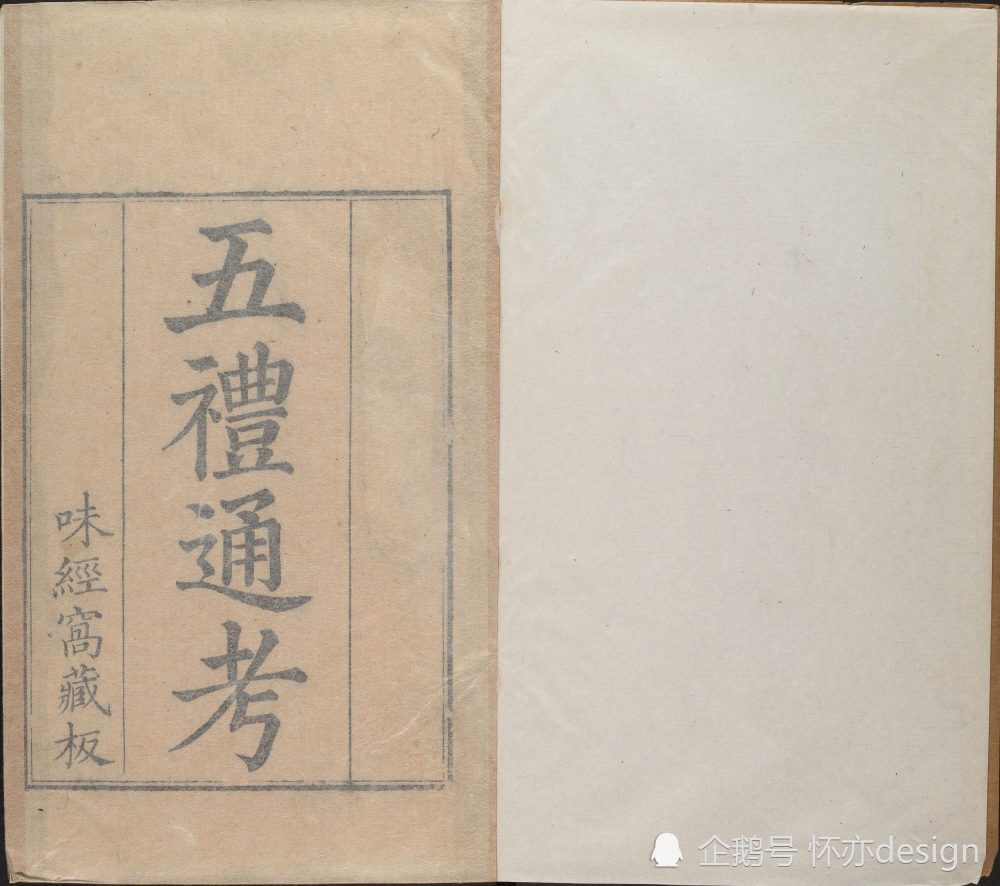 五禮通考
味經窩藏板
企鹅号 怀亦design